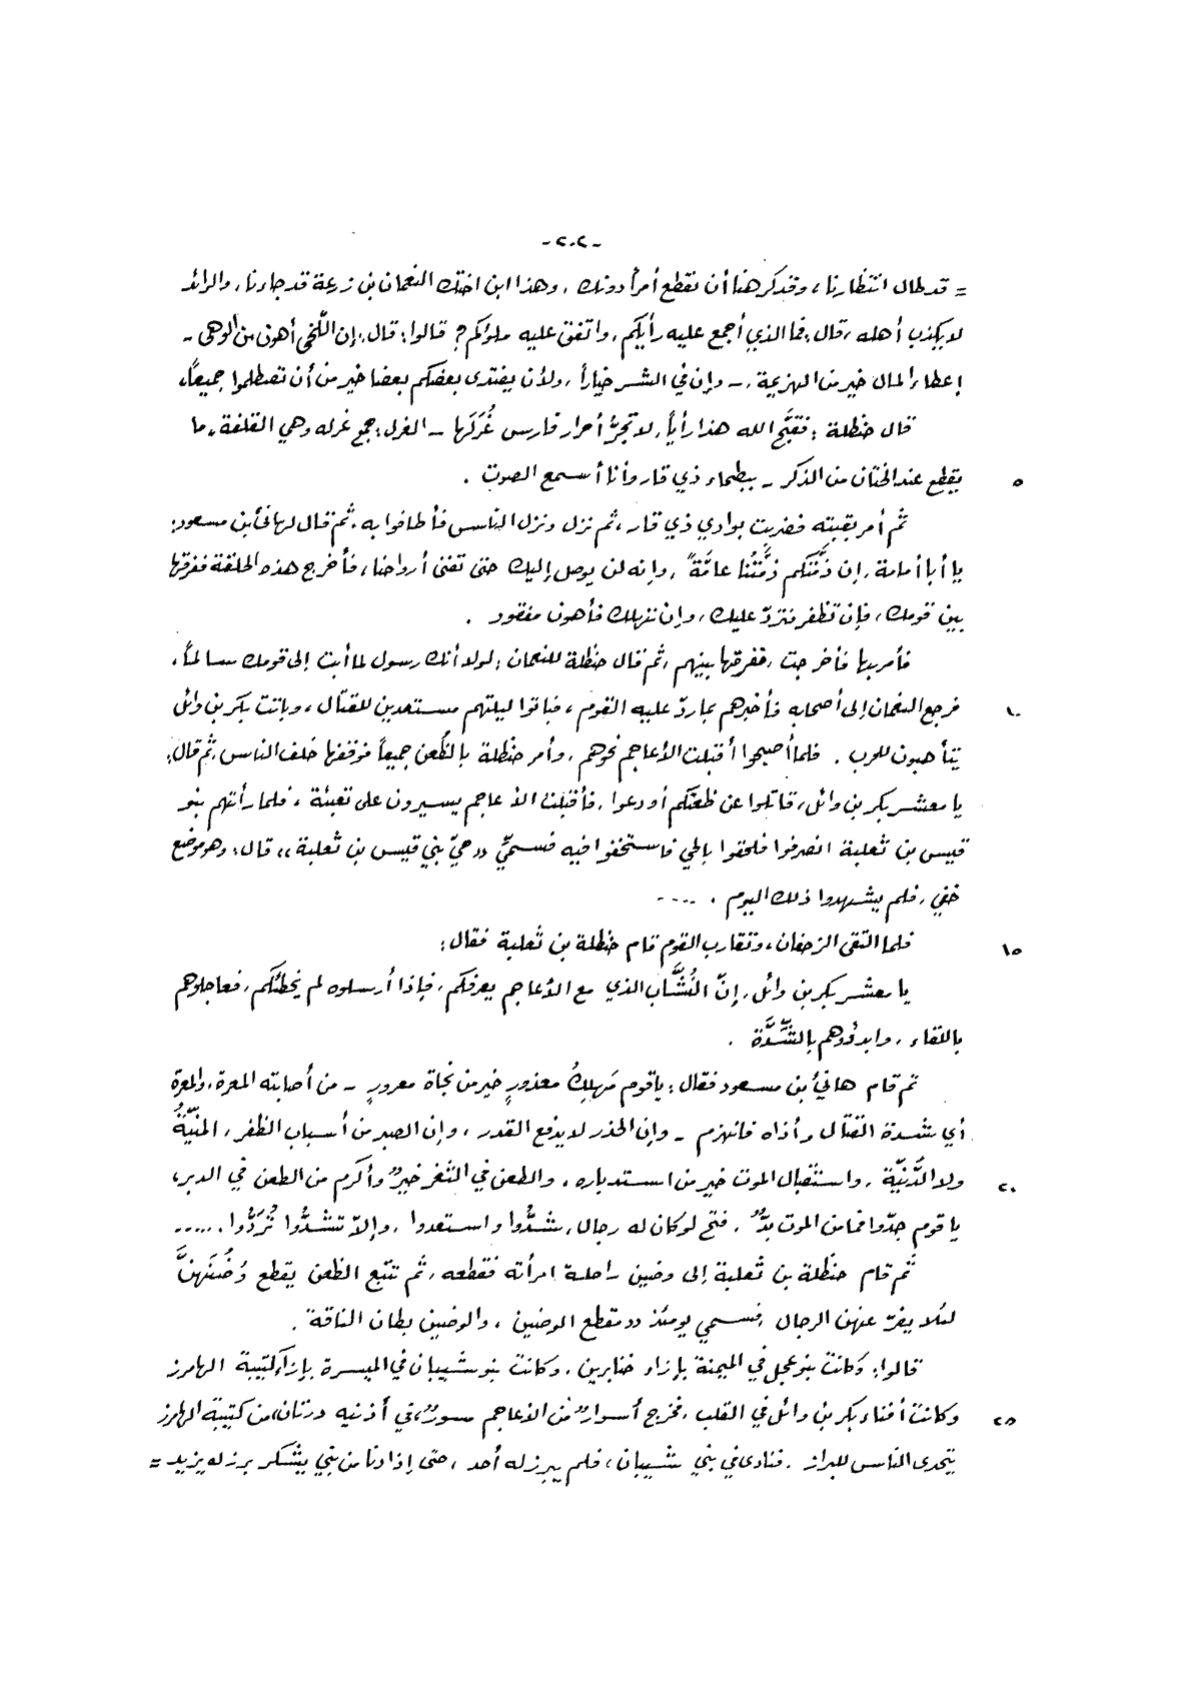 -٢٠٢-
= قد طال انتظارنا، وقد كرهنا أن نقطع أمراً دونك، وهذا ابن اختك النعمان بن زرعة قد جاءنا، والرائد
لا يكذب أهله، قال: فما الذي أجمع عليه رأيكم، واتفق عليه ملؤكم؟ قالوا: قال: إن اللّخي أهون من الوهي -
إعطاء المال خير من الهزيمة، - وإن في الشر خياراً، ولأن يفتدى بعضكم بعضا خير من أن تصطلموا جميعاً،
قال حنظلة: فقبّح الله هذا رأياً، لا تجرُّ أحرار فارس غُرَلَها - الغرل: جمع غرله وهي القلفة، ما
٥ يقطع عند الختان من الذكر - ببطحاء ذي قار وأنا أسمع الصوت .
ثُم أمر بقبته فضربت بوادي ذي قار، ثم نزل ونزل الناس فأطافوا به، ثم قال لهانئ بن مسعود:
يا أبا أمامة، إن ذمَّتكم ذمَّتُنا عامَّة، وإنه لن يوصل إليك حتى تفنى أرواحنا، فأخرج هذه الحلقة ففرقها
بين قومك، فإن تظفر فتردّ عليك، وإن تهلك فأهون مفقود .
فأمر بها فأخرجت، ففرقها بينهم، ثم قال حنظلة للنعمان: لولا أنك رسول لما أبت إلى قومك سالماً،
١٠ فرجع النعمان إلى أصحابه فأخبرهم بما ردّ عليه القوم، فباتوا ليلتهم مستعدين للقتال، وباتت بكر بن وائل
يتأهبون للحرب . فلما أصبحوا أقبلت الأعاجم نحوهم، وأمر حنظلة بالظُعن جميعاً فوقفها خلف الناس، ثم قال:
يا معشر بكر بن وائل، قاتلوا عن ظعنكم أو دعوا، فأقبلت الأعاجم يسيرون على تعبئة، فلما رأتهم بنو
قيس بن ثعلبة انصرفوا فلحقوا بالحي فاستخفوا فيه فسمّي «حيّ بني قيس بن ثعلبة» قال: وهو موضع
خفي، فلم يشهدوا ذلك اليوم . ....
١٥ فلما التقى الزحفان، وتقارب القوم قام حنظلة بن ثعلبة فقال:
يا معشر بكر بن وائل، إنّ النُشَّاب الذي مع الأعاجم يعرفكم، فإذا أرسلوه لم يخطئكم، فعاجلوهم
باللقاء، وابدؤوهم بالشِّدَّة .
ثم قام هانئ بن مسعود فقال: يا قوم مَهلِكُ معذورٍ خير من نجاة معرورٍ - من أصابته المعرة، والمعرة
أي شدة القتال وأذاه فانهزم - وإن الحذر لا يدفع القدر، وإن الصبر من أسباب الظفر، المنيّةُ
٢٠ ولا الدَّنيّة، واستقبال الموت خير من استدباره، والطعن في الثغر خيرٌ وأكرم من الطعن في الدبر،
يا قوم جدّوا فما من الموت بدٌّ، فتح لو كان له رجال، شدُّوا واستعدوا، وإلاّ تشدُّوا تُرَدُّوا. .....
ثم قام حنظلة بن ثعلبة إلى وضين راحلة امرأته فقطعه، ثم تتبع الظعن يقطع وُضُنَهنَّ
لئلا يفرّ عنهن الرجال، فسمي يومئذ «مقطع الوضين»، والوضين بطان الناقة .
قالوا: وكانت بنو عجل في الميمنة بإزاء خنابرين، وكانت بنو شيبان في الميسرة بإزاء كتيبة الهامرز
٢٥ وكانت أفناء بكر بن وائل في القلب، فخرج أسوارٌ من الأعاجم مسورٌ، في أذنيه درتان، من كتيبة الهامرز
يتحدى الناس للبراز، فنادى في بني شيبان، فلم يبرز له أحد، حتى إذا دنا من بني يشكر برز له يزيد =